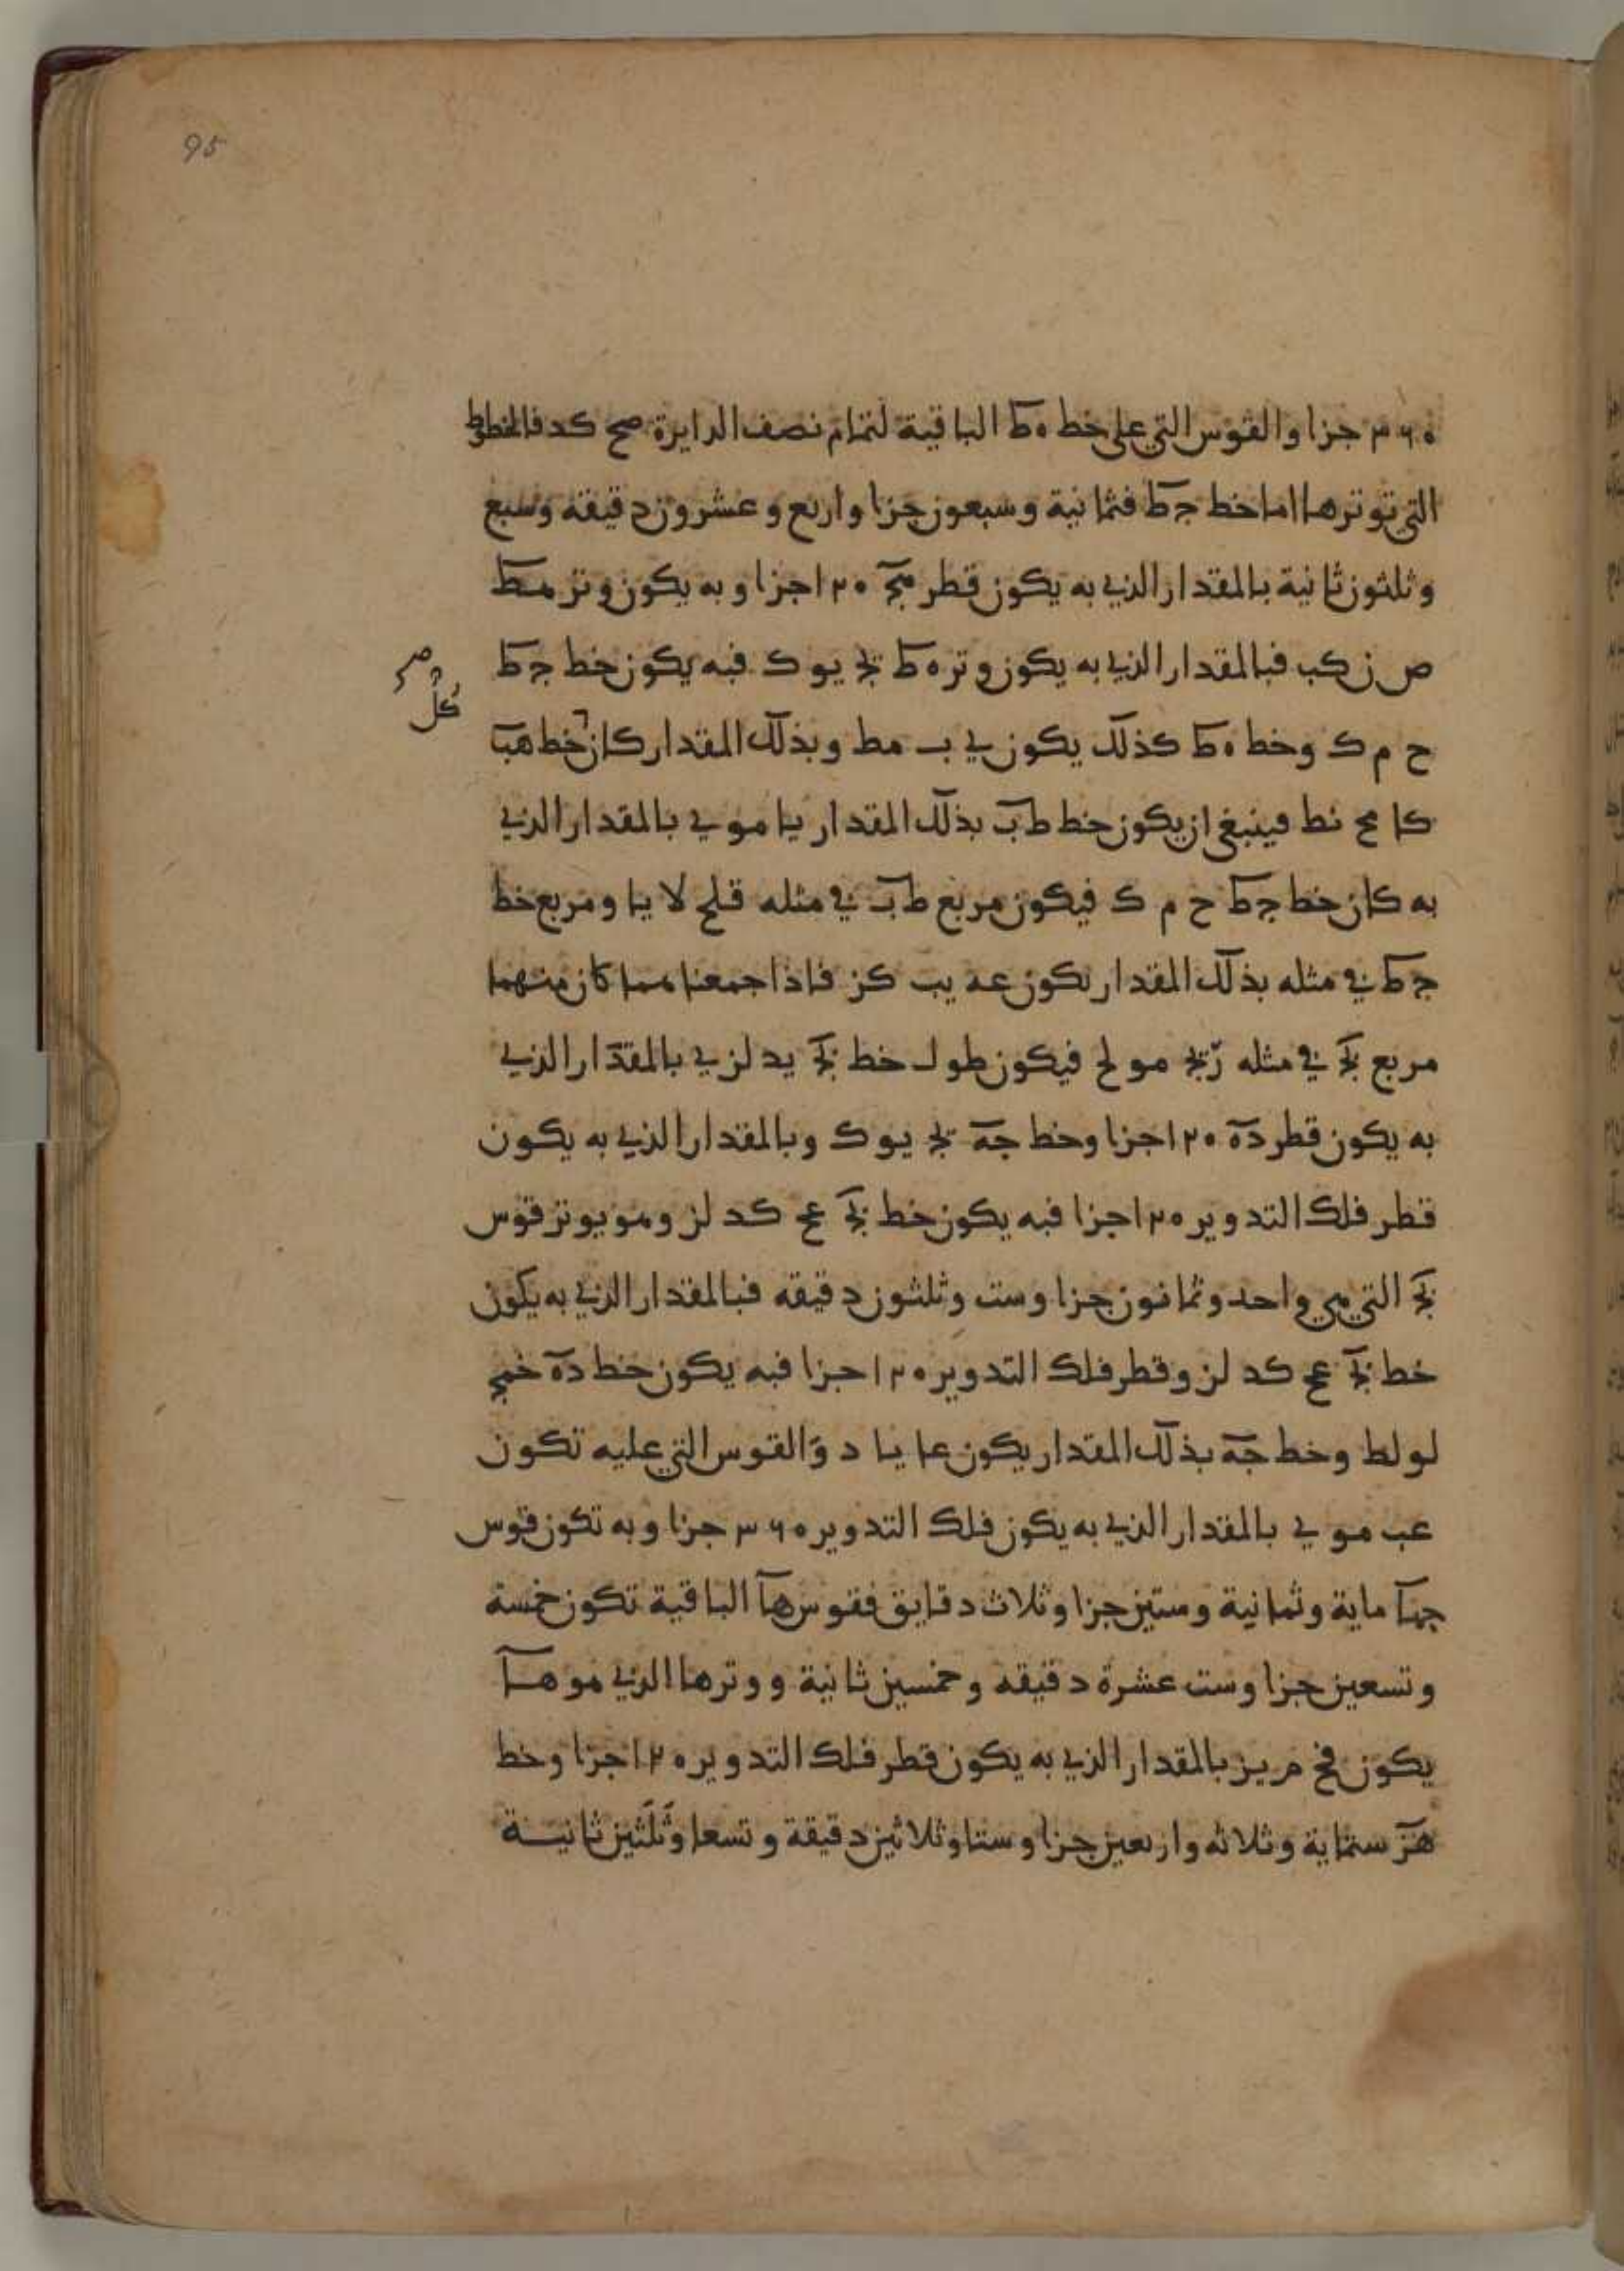 95
٣٦٠ جزا والقوس التي على خط ه ط الباقية لتمام نصف الدايرة صح كد فالخطوط
التي توترها اما خط جط فثمانية وسبعون جزا واربع وعشرون دقيقة وسبع
وثلثون ثانية بالمقدار الذي به يكون قطر مج ١٢٠ جزا وبه يكون وتر مط
ص ز كب فبالمقدار الذي به يكون وتر ه ط يوك فبه يكون خط جط
ح م ك وخط ه ط كذلك يكون ي ب مط وبذلك المقدار كان خط هب
كا مح نط فينبغي ان يكون خط طب بذلك المقدار يا مو ي بالمقدار الذي
به كان خط جط ح م ك فيكون مربع طب في مثله قلح لا يا ومربع خط
جط في مثله بذلك المقدار يكون عه يب كز فاذا جمعنا مما كان منهما
مربع بج في مثله مو لح فيكون طول خط بج يد لز ي بالمقدار الذي
به يكون قطر ده ١٢٠ جزا وخط جه يوك وبالمقدار الذي به يكون
قطر فلك التدوير ١٢٠ جزا فبه يكون خط بج عح كد لز وهو يوتر قوس
بج التي هي واحد وثمانون جزا وست وثلثون دقيقة فبالمقدار الذي به يكون
خط بج عح كد لز وقطر فلك التدوير ١٢٠ جزا فبه يكون خط ده خمج
لو لط وخط جه بذلك المقدار يكون عا يا د والقوس التي عليه تكون
عب مو ي بالمقدار الذي به يكون فلك التدوير ٣٦٠ جزا وبه تكون قوس
جها ماية وثمانية وستين جزا وثلاث دقايق فقوس ها الباقية تكون خمسة
وتسعين جزا وست عشرة دقيقه وخمسين ثانية ووترها الذي هو ها
يكون فح م يز بالمقدار الذي به يكون قطر فلك التدوير ١٢٠ جزا وخط
هز ستماية وثلاثه واربعين جزا وستا وثلاثين دقيقة وتسعا وثلثين ثانية